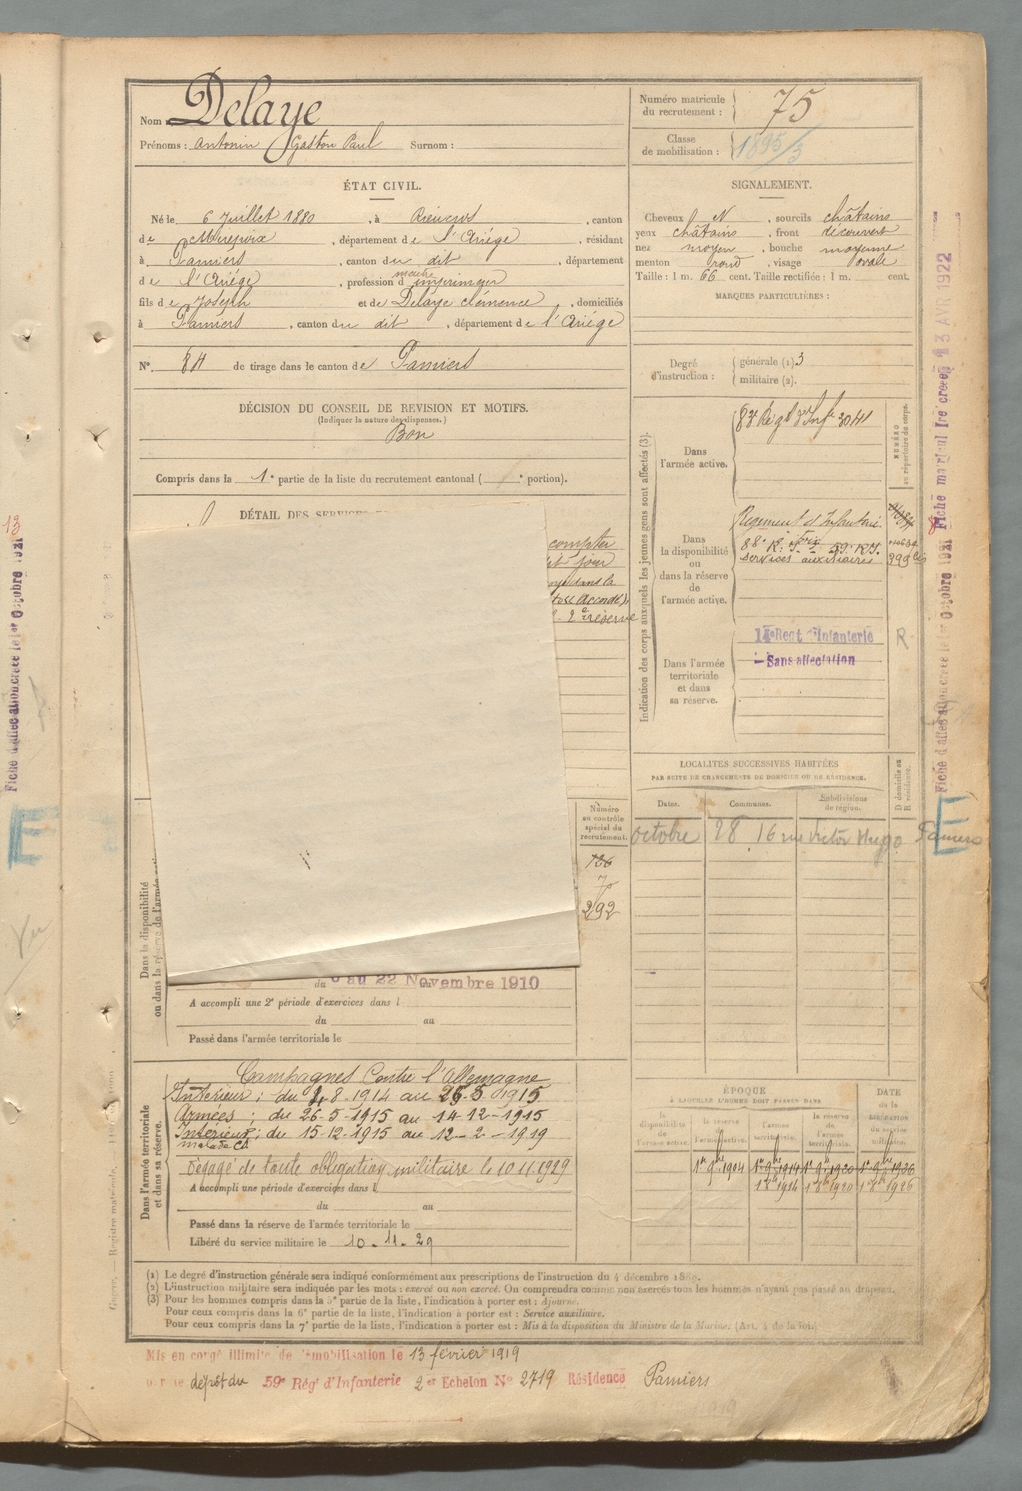 Nom Delaye
Prénoms : Antonin Gaston Paul Surnom :
Numéro matricule du recrutement : 75
Classe de mobilisation : 1895/3
ÉTAT CIVIL.
Né le 6 Juillet 1880, à Rieucros, canton
de Mirepoix, département de l'Ariège, résidant
à Pamiers, canton du dit, département
de l'Ariège, profession d'imprimeur
fils de Joseph et de Delaye Clémence, domiciliés
à Pamiers, canton du dit, département de l'Ariège
N° 84 de tirage dans le canton de Pamiers
DÉCISION DU CONSEIL DE REVISION ET MOTIFS.
(Indiquer la nature des dispenses.)
Bon
Compris dans la 1e partie de la liste du recrutement cantonal ( e portion).
DÉTAIL DES
compter
dit jour
dans la
accordé)
2e réserve
SIGNALEMENT.
Cheveux N, sourcils châtains
yeux châtains, front découvert
nez moyen, bouche moyenne
menton rond, visage ovale
Taille : 1 m. 66 cent. Taille rectifiée : 1 m. cent.
MARQUES PARTICULIÈRES :
Degré d'instruction : générale (1) 3
militaire (2).
Indication des corps auxquels les jeunes gens sont affectés (3).
NUMÉRO au répertoire du corps.
Dans l'armée active.
83e Régt d'Infie 3041
Dans la disponibilité ou dans la réserve de l'armée active.
Régiment d'Infanterie
88e R.I. Foix 59e R.I.
services auxiliaires
Dans l'armée territoriale et dans sa réserve.
14e Régt d'Infanterie R
Sans affectation
LOCALITES SUCCESSIVES HABITÉES
PAR SUITE DE CHANGEMENTS DE DOMICILE OU DE RÉSIDENCE.
D domicile ou R résidence.
Dates. Communes. Subdivisions de région.
octobre 28 16 rue Victor Hugo Pamiers
Numéro au contrôle spécial du recrutement.
126
7
292
Dans la disponibilité ou dans la réserve de l'armée
du au 22 Novembre 1910
A accompli une 2e période d'exercices dans l
du au
Passé dans l'armée territoriale le
Dans l'armée territoriale et dans sa réserve.
Campagnes Contre l'Allemagne
Intérieur : du 4-8-1914 au 25-5-1915
Armées : du 26-5-1915 au 14-12-1915
Intérieur : du 15-12-1915 au 12-2-1919
malade
Dégagé de toute obligation militaire le 10.11.1929
A accompli une période d'exercices dans l
du au
Passé dans la réserve de l'armée territoriale le
Libéré du service militaire le 10-11-29
ÉPOQUE
A LAQUELLE L'HOMME DOIT PASSER DANS
DATE de la LIBÉRATION DU SERVICE militaire.
la disponibilité de l'armée active. la réserve de l'armée active. l'armée territoriale. la réserve de l'armée territoriale.
1er 9bre 1904 1er 9bre 1914 1er 9bre 1920 1er 9bre 1926
1er 8bre 1914 1 8bre 1920 1er 8bre 1926
(1) Le degré d'instruction générale sera indiqué conformément aux prescriptions de l'instruction du 4 décembre 1889.
(2) L'instruction militaire sera indiquée par les mots : exercé ou non exercé. On comprendra comme non exercés tous les hommes n'ayant pas passé au drapeau.
(3) Pour les hommes compris dans la 5e partie de la liste, l'indication à porter est : Ajourné.
Pour ceux compris dans la 6e partie de la liste, l'indication à porter est : Service auxiliaire.
Pour ceux compris dans la 7e partie de la liste, l'indication à porter est : Mis à la disposition du Ministre de la Marine. (Art. 4 de la loi.)
Mis en congé illimité de démobilisation le 13 février 1919
par le dépôt du 59e Régt d'Infanterie 2e Echelon N° 2719 Résidence Pamiers
Fiche d'affectation créée le 1er Octobre 1921
Fiche d'affectation créée le 1er Octobre 1921 Fiche matricule créée le 13 AVR 1922
13
E
Vu
E